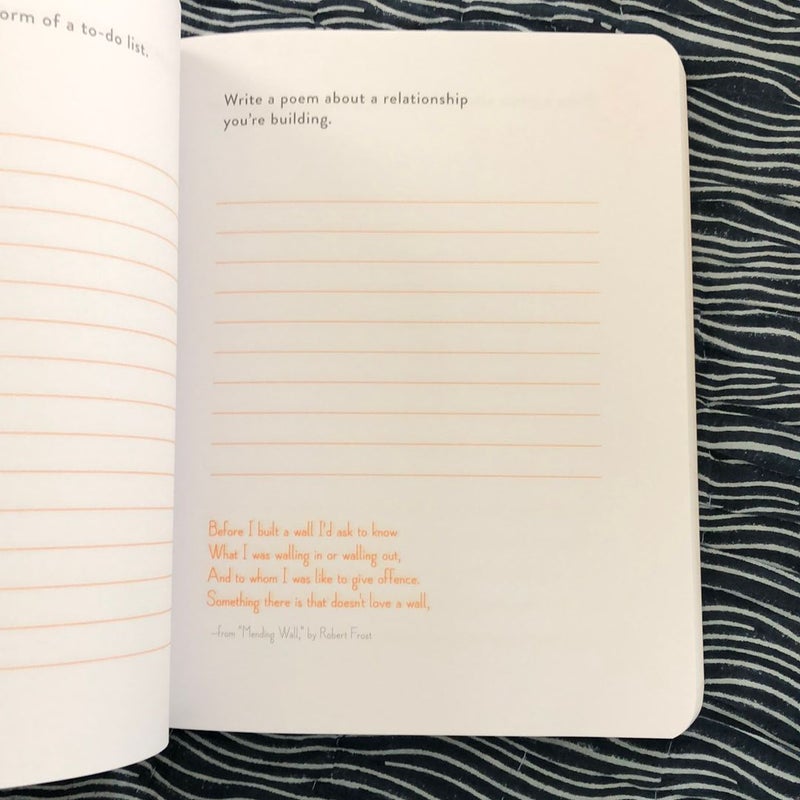 orm of a to-do list.
Write a poem about a relationship
you're building.
Before I built a wall I'd ask to know
What I was walling in or walling out,
And to whom I was like to give offence.
Something there is that doesn't love a wall,
—from "Mending Wall," by Robert Frost